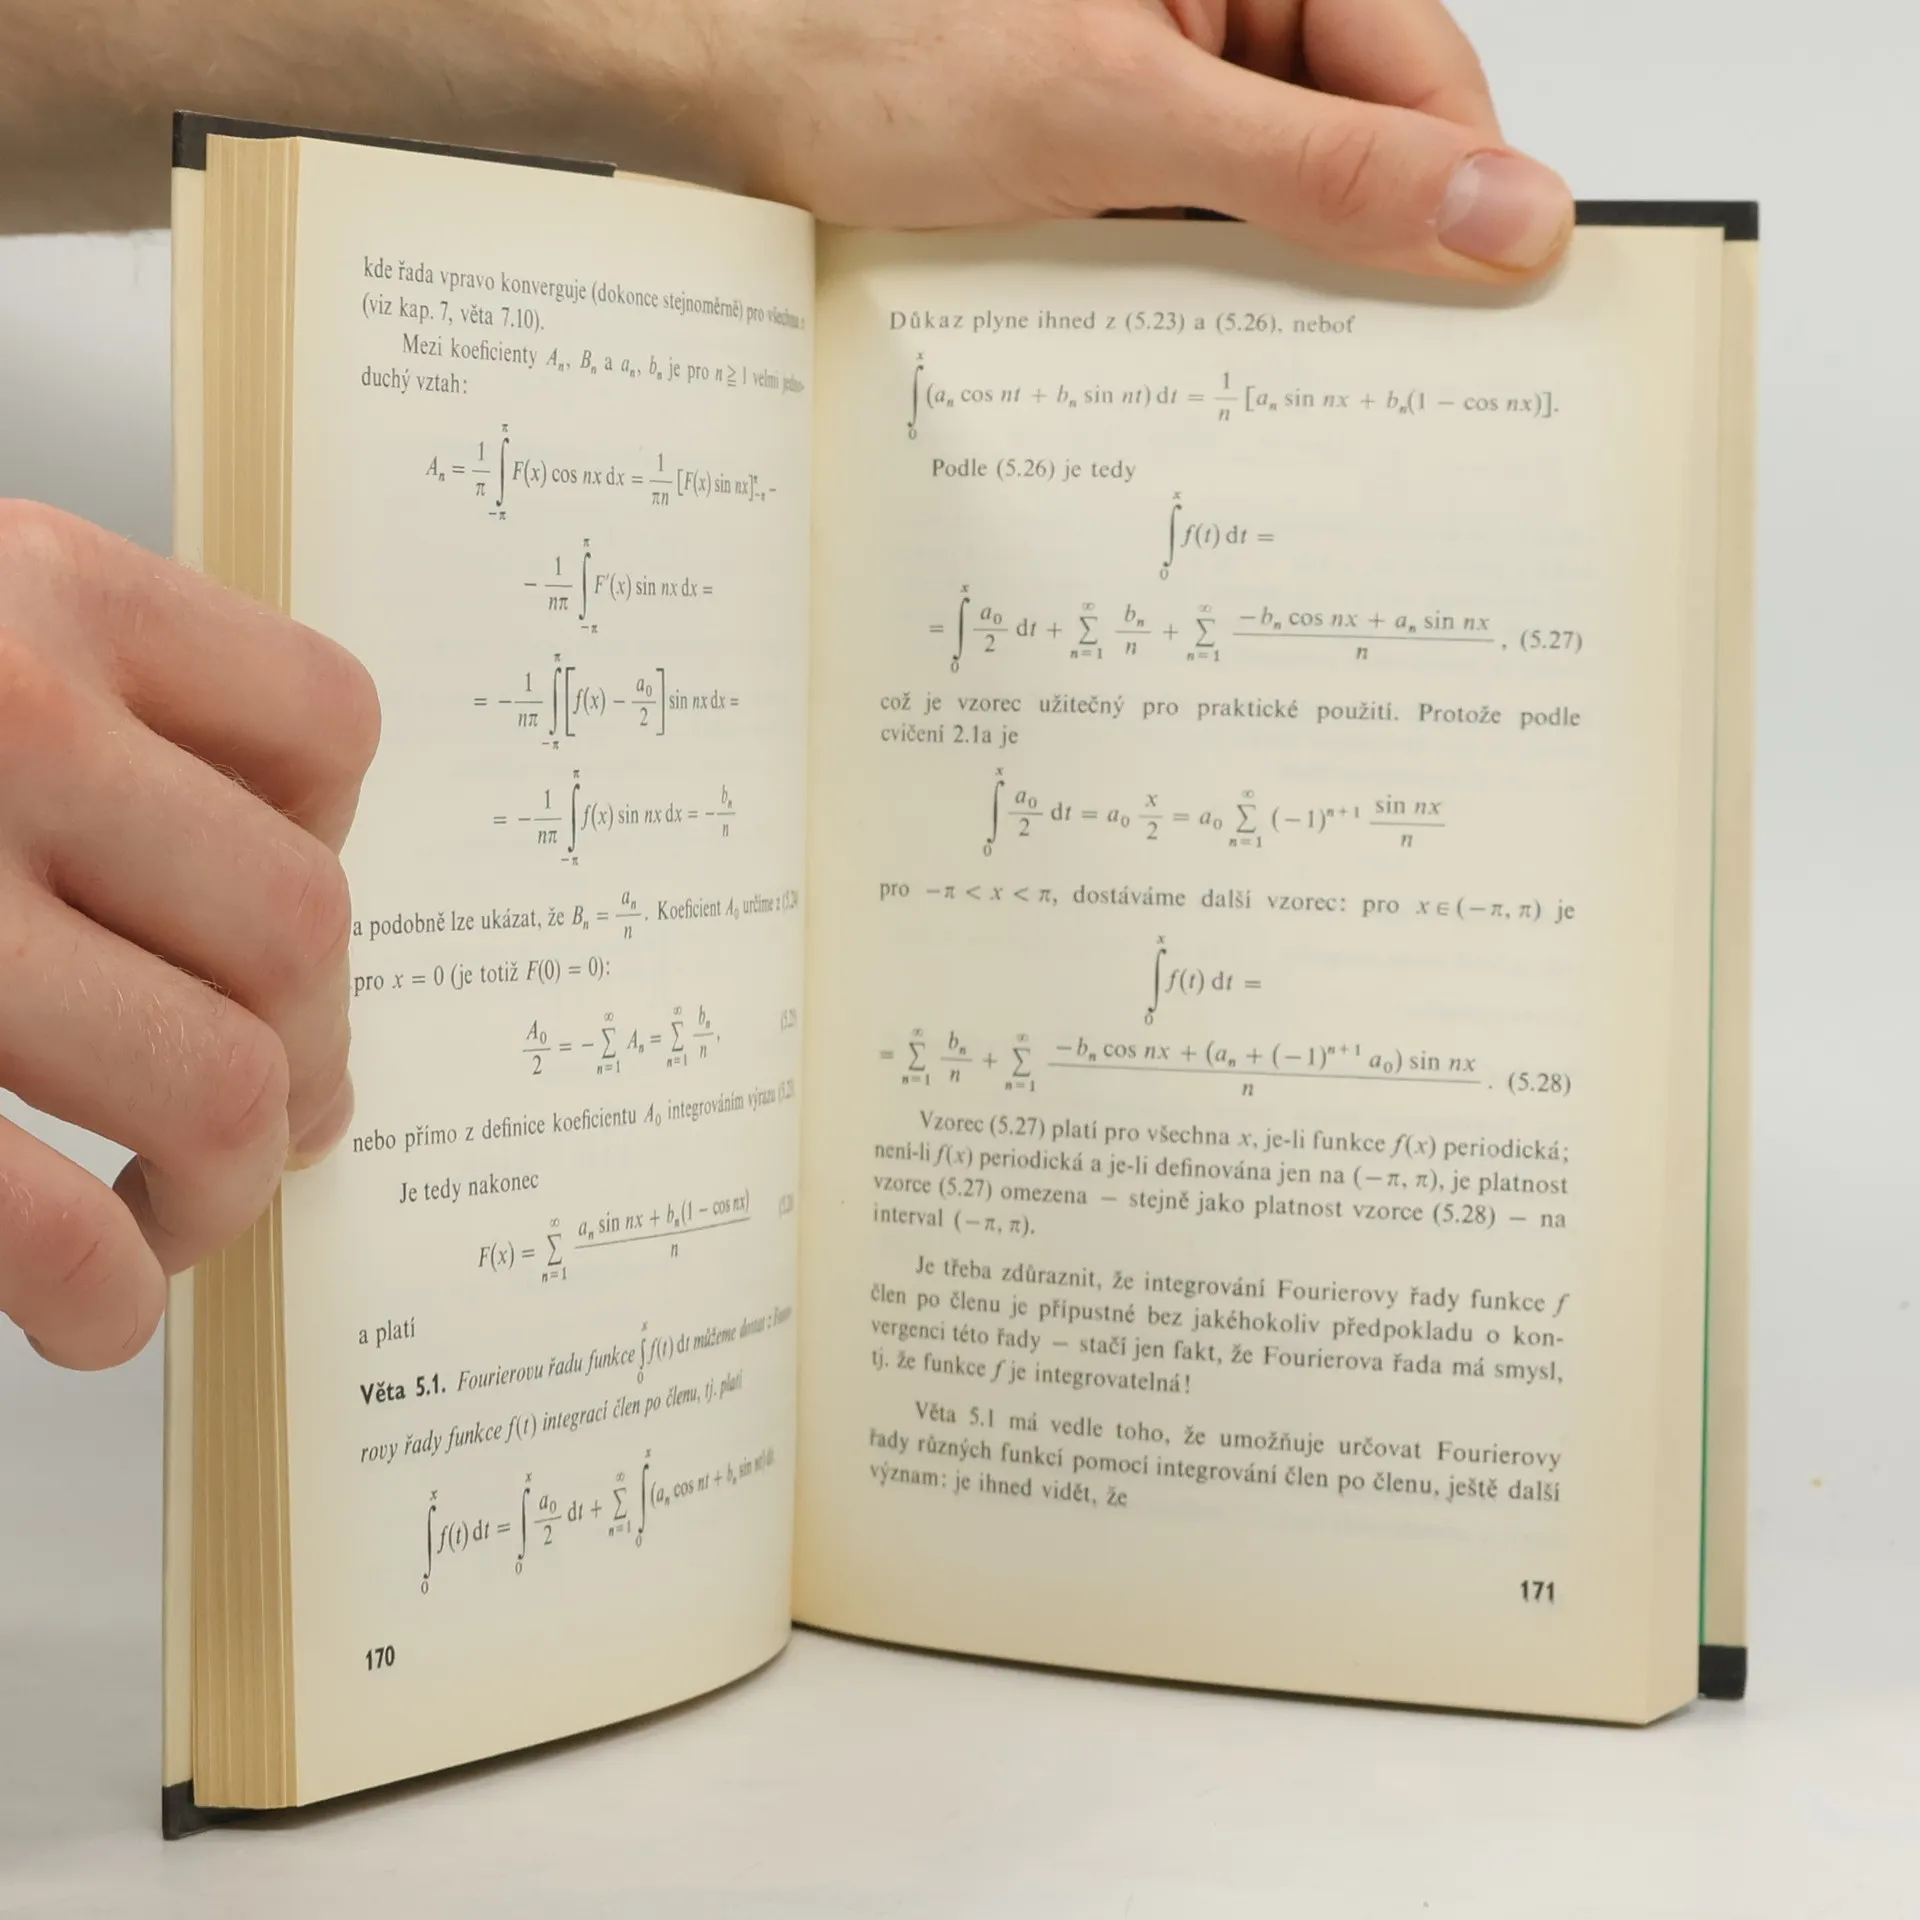 kde řada vpravo konverguje (dokonce stejnoměrně) pro všechna x
(viz kap. 7, věta 7.10).
Mezi koeficienty Aₙ, Bₙ a aₙ, bₙ je pro n ≧ 1 velmi jedno-
duchý vztah:
Aₙ = 1/π ∫_{−π}^{π} F(x) cos nx dx = 1/(πn) [F(x) sin nx]_{−π}^{π} −
− 1/(nπ) ∫_{−π}^{π} F′(x) sin nx dx =
= − 1/(nπ) ∫_{−π}^{π} [f(x) − a₀/2] sin nx dx =
= − 1/(nπ) ∫_{−π}^{π} f(x) sin nx dx = − bₙ/n
a podobně lze ukázat, že Bₙ = aₙ/n. Koeficient A₀ určíme z
pro x = 0 (je totiž F(0) = 0):
A₀/2 = − ∑_{n=1}^{∞} Aₙ = ∑_{n=1}^{∞} bₙ/n,
nebo přímo z definice koeficientu A₀ integrováním výrazu
Je tedy nakonec
F(x) = ∑_{n=1}^{∞} (aₙ sin nx + bₙ(1 − cos nx))/n
a platí
Věta 5.1. Fourierovu řadu funkce ∫_{0}^{x} f(t) dt můžeme dostat z Fourie-
rovy řady funkce f(t) integrací člen po členu, tj. platí
∫_{0}^{x} f(t) dt = ∫_{0}^{x} a₀/2 dt + ∑_{n=1}^{∞} ∫_{0}^{x} (aₙ cos nt + bₙ sin nt) dt.
170
Důkaz plyne ihned z (5.23) a (5.26), neboť
∫_{0}^{x} (aₙ cos nt + bₙ sin nt) dt = 1/n [aₙ sin nx + bₙ(1 − cos nx)].
Podle (5.26) je tedy
∫_{0}^{x} f(t) dt =
= ∫_{0}^{x} a₀/2 dt + ∑_{n=1}^{∞} bₙ/n + ∑_{n=1}^{∞} (−bₙ cos nx + aₙ sin nx)/n, (5.27)
což je vzorec užitečný pro praktické použití. Protože podle
cvičení 2.1a je
∫_{0}^{x} a₀/2 dt = a₀ x/2 = a₀ ∑_{n=1}^{∞} (−1)ⁿ⁺¹ sin nx/n
pro −π < x < π, dostáváme další vzorec: pro x ∈ (−π, π) je
∫_{0}^{x} f(t) dt =
= ∑_{n=1}^{∞} bₙ/n + ∑_{n=1}^{∞} (−bₙ cos nx + (aₙ + (−1)ⁿ⁺¹ a₀) sin nx)/n. (5.28)
Vzorec (5.27) platí pro všechna x, je-li funkce f(x) periodická;
není-li f(x) periodická a je-li definována jen na (−π, π), je platnost
vzorce (5.27) omezena — stejně jako platnost vzorce (5.28) — na
interval (−π, π).
Je třeba zdůraznit, že integrování Fourierovy řady funkce f
člen po členu je přípustné bez jakéhokoliv předpokladu o kon-
vergenci této řady — stačí jen fakt, že Fourierova řada má smysl,
tj. že funkce f je integrovatelná!
Věta 5.1 má vedle toho, že umožňuje určovat Fourierovy
řady různých funkcí pomocí integrování člen po členu, ještě další
význam: je ihned vidět, že
171